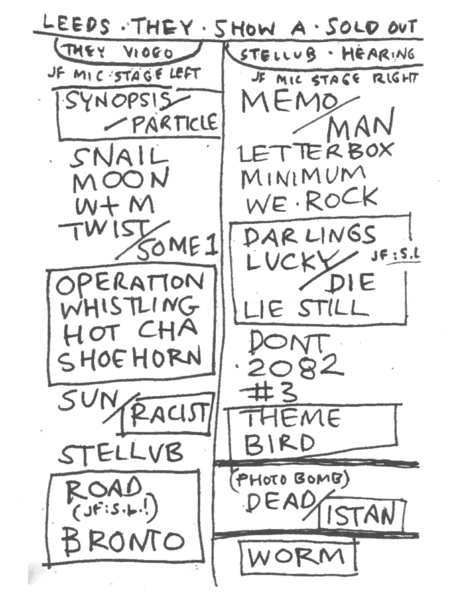 LEEDS · THEY · SHOW A · SOLD OUT
THEY VIDEO
JF MIC STAGE LEFT
SYNOPSIS/
PARTICLE
SNAIL
MOON
W+M
TWIST/
SOME 1
OPERATION
WHISTLING
HOT CHA
SHOEHORN
SUN/
RACIST
STELLUB
ROAD
(JF:S.L.!)
BRONTO
STELLUB · HEARING
JF MIC STAGE RIGHT
MEMO/
MAN
LETTERBOX
MINIMUM
WE·ROCK
DARLINGS
LUCKY/ JF:S.L
DIE
LIE STILL
DONT
2082
#3
THEME
BIRD
(PHOTO BOMB)
DEAD/
ISTAN
WORM